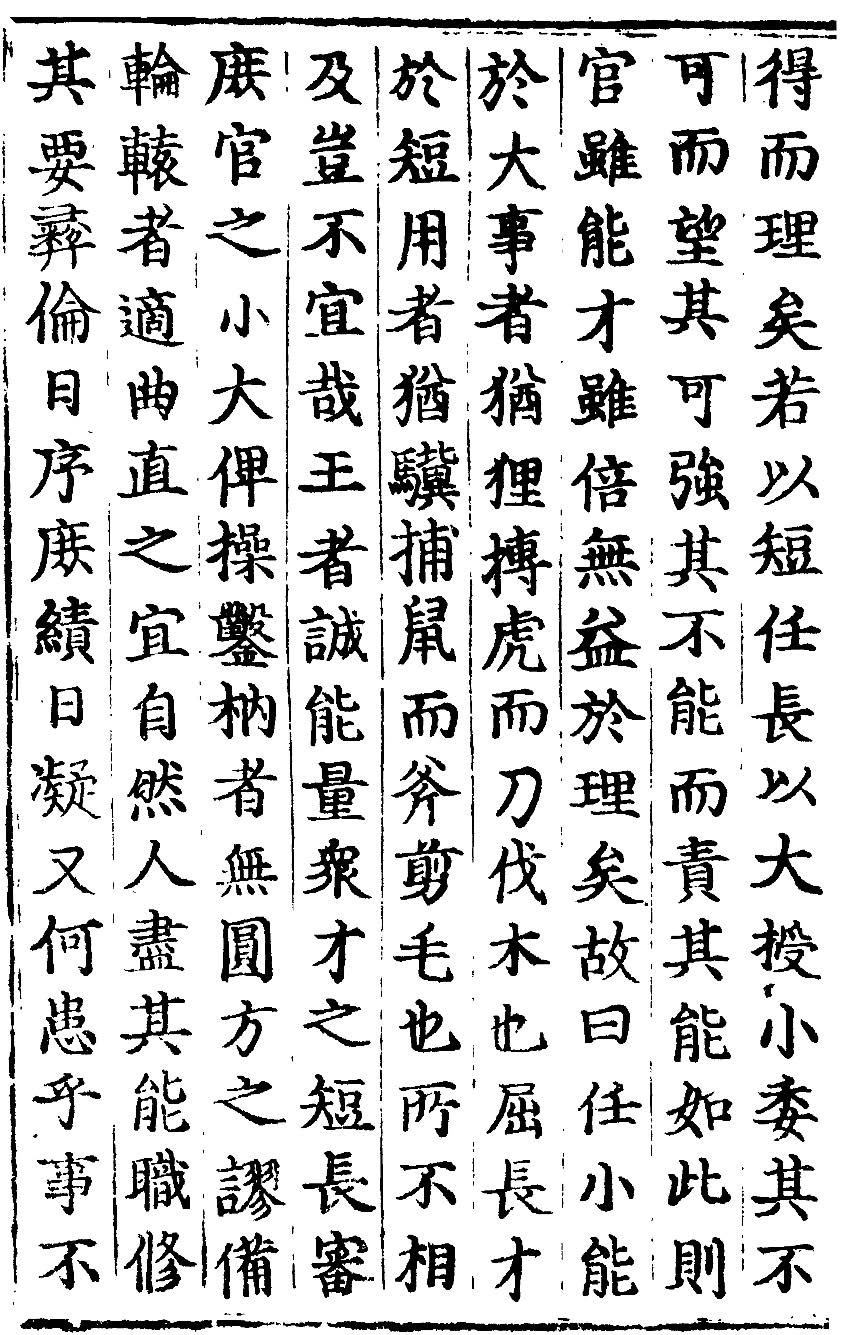 得而理矣若以短任長以大授小委其不
可而望其可強其不能而責其能如此則
官雖能才雖倍無益於理矣故曰任小能
於大事者猶狸搏虎而刀伐木也屈長才
於短用者猶驥捕鼠而斧剪毛也所不相
及豈不宜哉王者誠能量衆才之短長審
庻官之小大俾操鑿枘者無圓方之謬備
輪轅者適曲直之宜自然人盡其能職修
其要彛倫日序庻績日凝又何患乎事不